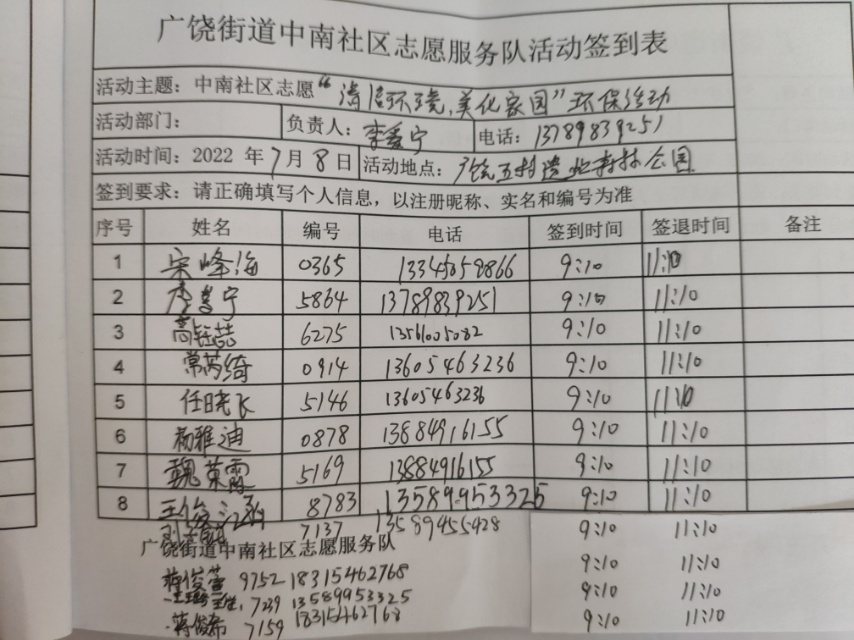 广饶街道中南社区志愿服务队活动签到表
活动主题: 中南社区志愿“清洁环境,美化家园”环保活动
活动部门: 负责人: 李爱宁 电话: 13789839251
活动时间: 2022 年 7 月 8 日 活动地点: 广饶五村造北森林公园
签到要求: 请正确填写个人信息,以注册昵称、实名和编号为准
序号 姓名 编号 电话 签到时间 签退时间 备注
1 宋峰海 0365 13345058866 9:10 11:10
2 李爱宁 5864 13789839251 9:10 11:10
3 高钰喆 6275 13561005082 9:10 11:10
4 常芮绮 0914 13605463236 9:10 11:10
5 任晓飞 5146 13605463236 9:10 11:10
6 杨雅迪 0878 13884916155 9:10 11:10
7 魏荣霞 5169 13884916155 9:10 11:10
8 王俊涵 8783 13589953325 9:10 11:10
7137 13589455428 9:10 11:10
广饶街道中南社区志愿服务队
蒋俊萱 9752 18315462768 9:10 11:10
7239 13589953325 9:10 11:10
蒋俊希 7159 18315462768 9:10 11:10